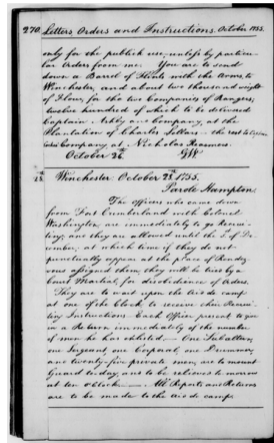 270. Letters Orders and Instructions. October 1755.
only for the publick use, unless by particu-
lar Orders from me. You are to send
down a Barrel of Flints with the Arms, to
Winchester, and about two thousand weight
of Flour, for the two Companies of Rangers;
twelve hundred of which to be delivered
Captain Ashby and Company, at the
Plantation of Charles Sellars — the rest to Captain
Cocks' Company, at Nicholas Reasmers.
October 26. GW
28 Winchester: October 28th, 1755.
Parole Hampton.
The Officers who came down
from Fort Cumberland with Colonel
Washington, are immediately to go Recrui-
ting; and they are allowed until the 1st of De-
cember, at which time if they do not
punctually appear at the place of Rendez-
vous assigned them, they will be tried by a
Court Martial, for disobedience of Orders.
They are to wait upon the Aid de camp
at one of the Clock, to receive their Recrui-
ting Instructions. Each Officer present to give
in a Return immediately of the number
of men he has enlisted. — One Subaltern,
one Sergeant, one Corporal, one Drummer,
and twenty-five private men, are to mount
Guard to-day, and to be relieved to-morrow
at ten o'clock — All Reports and Returns
are to be made to the Aid de camp.